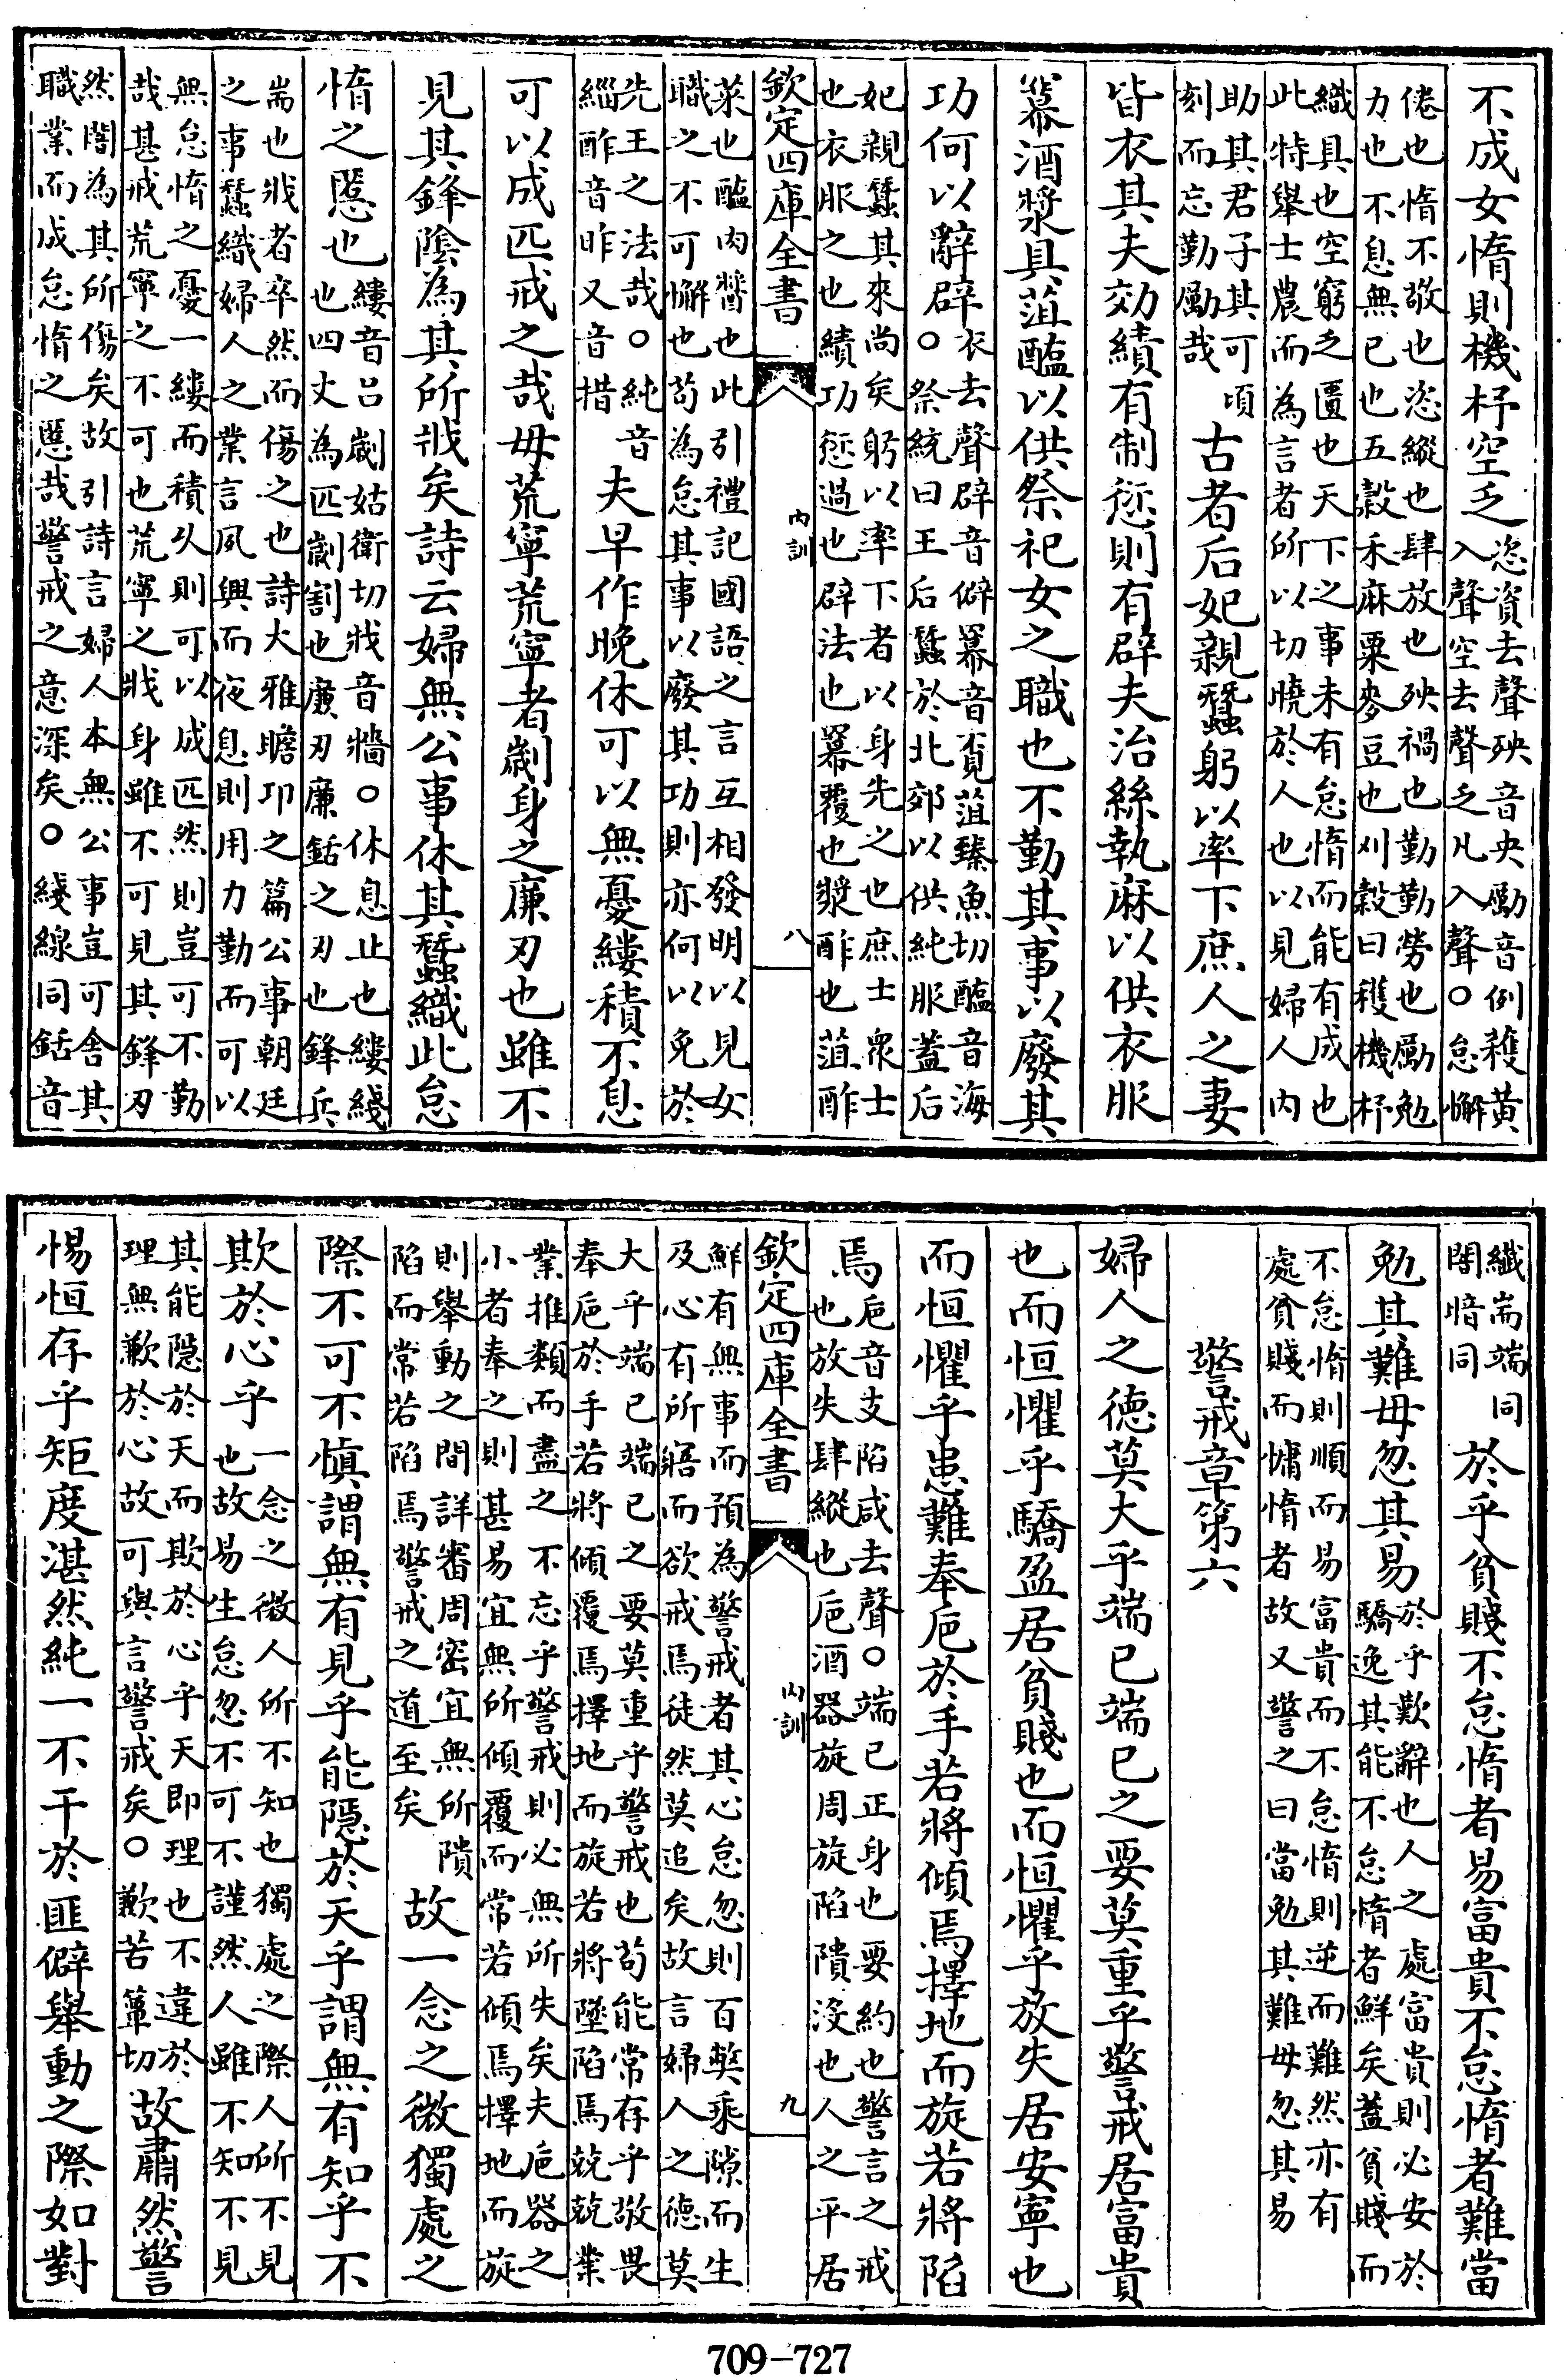 不成女惰則機杼空乏恣資去聲殃音央勵音例穫黃入聲空去聲乏凡入聲○怠懈
倦也惰不敬也恣縱也肆放也殃禍也勤勤勞也勵勉力也不息無已也五穀禾麻粟麥豆也刈穀曰穫機杼
織具也空窮乏匱也天下之事未有怠惰而能有成也此特舉士農而為言者所以切曉於人也以見婦人内
助其君子其可頃刻而忘勤勵哉古者后妃親蠶躬以率下庶人之妻
皆衣其夫効績有制愆則有辟夫治絲執麻以供衣服
冪酒漿具菹醢以供祭祀女之職也不勤其事以廢其
功何以辭辟衣去聲辟音僻冪音覓菹臻魚切醢音海○祭統曰王后蠶於北郊以供純服蓋后
妃親蠶其來尚矣躬以率下者以身先之也庶士衆士也衣服之也績功愆過也辟法也冪覆也漿酢也菹酢
欽定四庫全書 内訓 八
菜也醢肉醬也此引禮記國語之言互相發明以見女職之不可懈也苟為怠其事以廢其功則亦何以免於
先王之法哉○純音緇酢音昨又音措夫早作晚休可以無憂縷積不息
可以成匹戒之哉毋荒寧荒寧者劌身之廉刃也雖不
見其鋒陰為其所戕矣詩云婦無公事休其蠶織此怠
惰之慝也縷音吕劌姑衛切戕音牆○休息止也縷綫也四丈為匹劌割也廉刃廉銛之刃也鋒兵
耑也戕者卒然而傷之也詩大雅瞻卬之篇公事朝廷之事蠶織婦人之業言夙興而夜息則用力勤而可以
無怠惰之憂一縷而積久則可以成匹然則豈可不勤哉甚戒荒寧之不可也荒寧之戕身雖不可見其鋒刃
然闇為其所傷矣故引詩言婦人本無公事豈可舍其職業而成怠惰之慝哉警戒之意深矣○綫線同銛音
纎耑端同闇暗同於乎貧賤不怠惰者易富貴不怠惰者難當
勉其難毋忽其易於乎歎辭也人之處富貴則必安於驕逸其能不怠惰者鮮矣蓋貧賤而
不怠惰則順而易富貴而不怠惰則逆而難然亦有處貧賤而慵惰者故又警之曰當勉其難毋忽其易
警戒章第六
婦人之德莫大乎端已端已之要莫重乎警戒居富貴
也而恒懼乎驕盈居貧賤也而恒懼乎放失居安寧也
而恒懼乎患難奉巵於手若將傾焉擇地而旋若將陷
焉巵音支陷咸去聲○端已正身也要約也警言之戒也放失肆縱也巵酒器旋周旋陷隤没也人之平居
欽定四庫全書 内訓 九
鮮有無事而預為警戒者其心怠忽則百獘乘隙而生及心有所寤而欲戒焉徒然莫追矣故言婦人之德莫
大乎端已端已之要莫重乎警戒也苟能常存乎敬畏奉巵於手若將傾覆焉擇地而旋若將墜陷焉兢兢業
業推類而盡之不忘乎警戒則必無所失矣夫巵器之小者奉之則甚易宜無所傾覆而常若傾焉擇地而旋
則舉動之間詳審周密宜無所隤陷而常若陷焉警戒之道至矣故一念之微獨處之
際不可不慎謂無有見乎能隱於天乎謂無有知乎不
欺於心乎一念之微人所不知也獨處之際人所不見也故易生怠忽不可不謹然人雖不知不見
其能隱於天而欺於心乎天即理也不違於理無歉於心故可與言警戒矣○歉苦簟切故肅然警
惕恒存乎矩度湛然純一不干於匪僻舉動之際如對
709-727